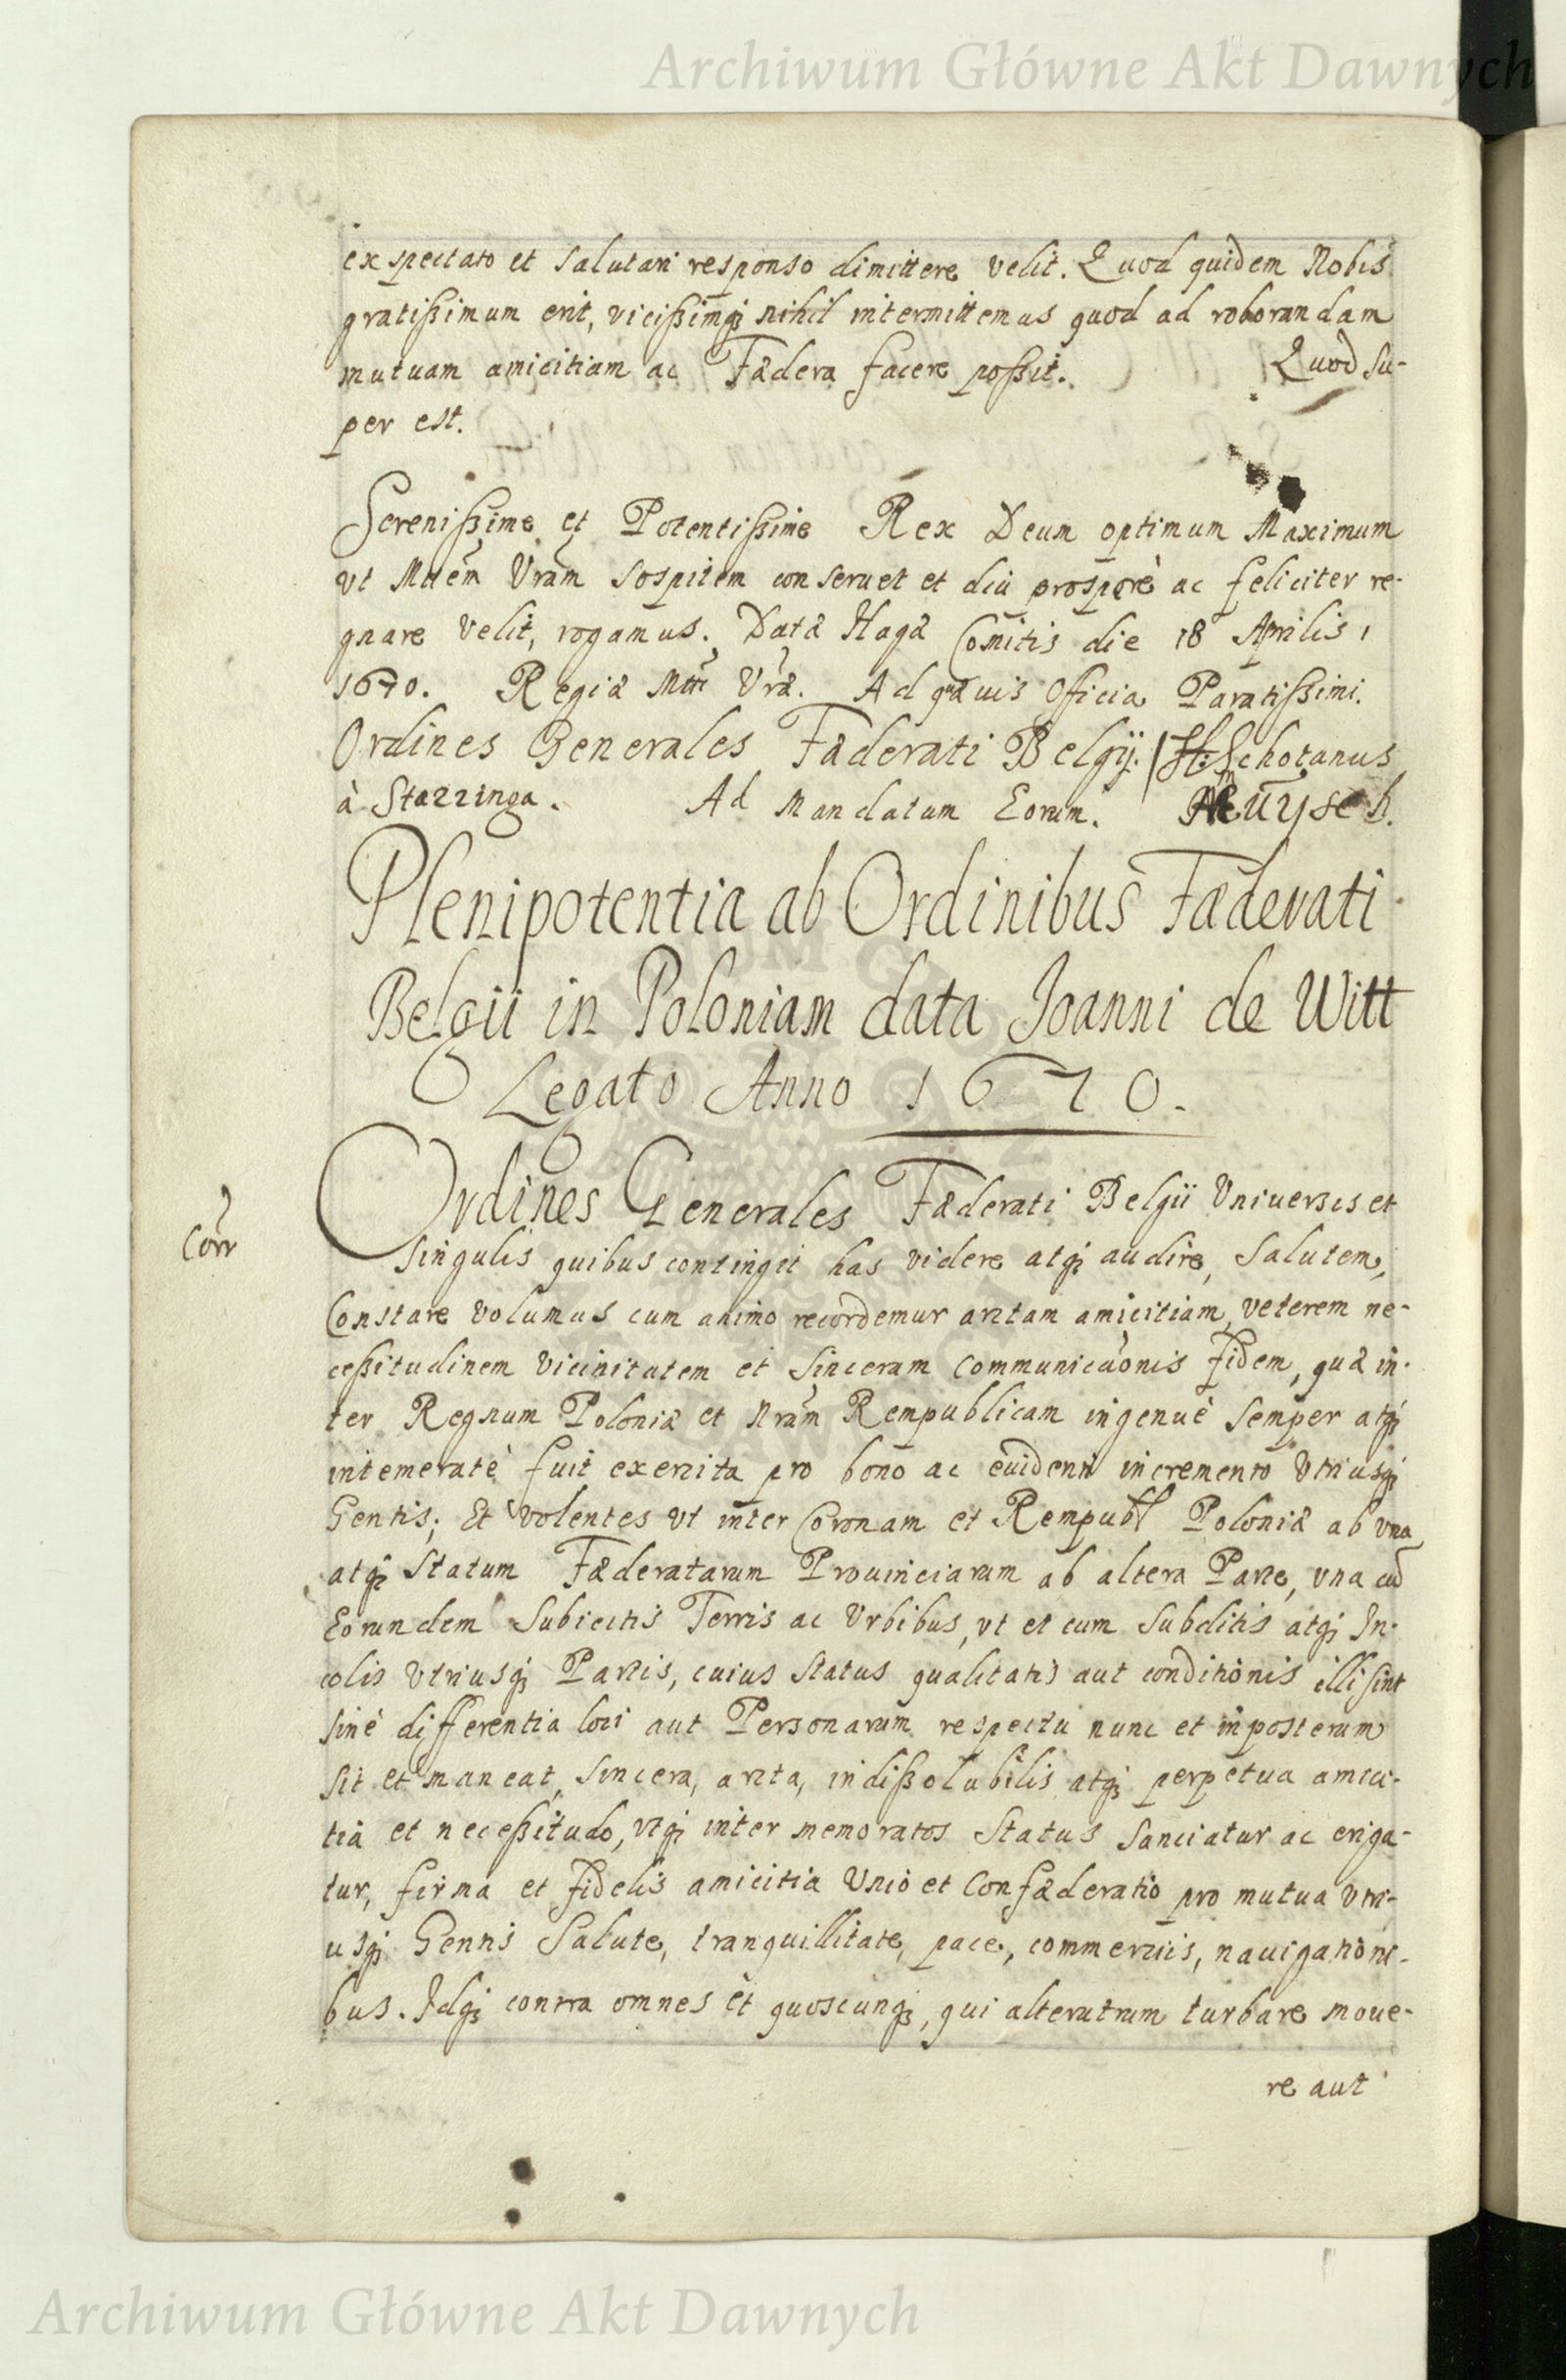 Archiwum Główne Akt Dawnych
exspectato et salutari responso dimittere velit. Quod quidem Nobis
gratissimum erit, vicissimq; nihil intermittemus quod ad roborandam
mutuam amicitiam ac Fædera facere possit. Quod su-
per est.
Serenissime et Potentissime Rex Deum optimum Maximum
vt Mttem Vram sospitem conseruet et diu prosperè ac feliciter re-
gnare velit, rogamus. Datæ Hagæ Comitis die 18 Aprilis,
1670. Regiæ Mttis Vræ. Ad quæuis Officia Paratissimi.
Ordines Generales Fæderati Belgij. H: Schotanus
à Starringa. Ad Mandatum Eorum. Ruÿsch.
Plenipotentia ab Ordinibus Fæderati
Belgii in Poloniam data Joanni de Witt
Legato Anno 1670.
Ordines Generales Fæderati Belgii Vniuersis et
Corr
singulis quibus contingit has videre atq; audire, Salutem,
Constare volumus cum animo recordemur arctam amicitiam, veterem ne-
cessitudinem vicinitatem et sinceram communicaõnis fidem, quæ in-
ter Regnum Poloniæ et Nram Rempublicam ingenuè semper atq;
intemeratè fuit exercita pro bono ac euidenti incremento Vtriusq;
Gentis; Et volentes vt inter Coronam et Rempubl Poloniæ ab vna
atq; Statum Fæderatarum Prouinciarum ab altera Parte, vna cũ
Eorundem Subiectis Terris ac Vrbibus, vt et cum Subditis atq; In-
colis Vtriusq; Partis, cuius status qualitatis aut conditionis illi sint
sinè differentia loci aut Personarum respectu nunc et inposterum
sit et maneat, sincera, arcta, indissolubilis atq; perpetua amici-
tia et necessitudo, vtq; inter memoratos Status sanciatur ac eriga-
tur, firma et fidelis amicitia Vnio et Confæderatio pro mutua vtri-
usq; Gentis Salute, tranquillitate, pace, commerciis, nauigationi-
bus. Idq; contra omnes et quoscunq;, qui alterutrum turbare moue-
re aut
Archiwum Główne Akt Dawnych